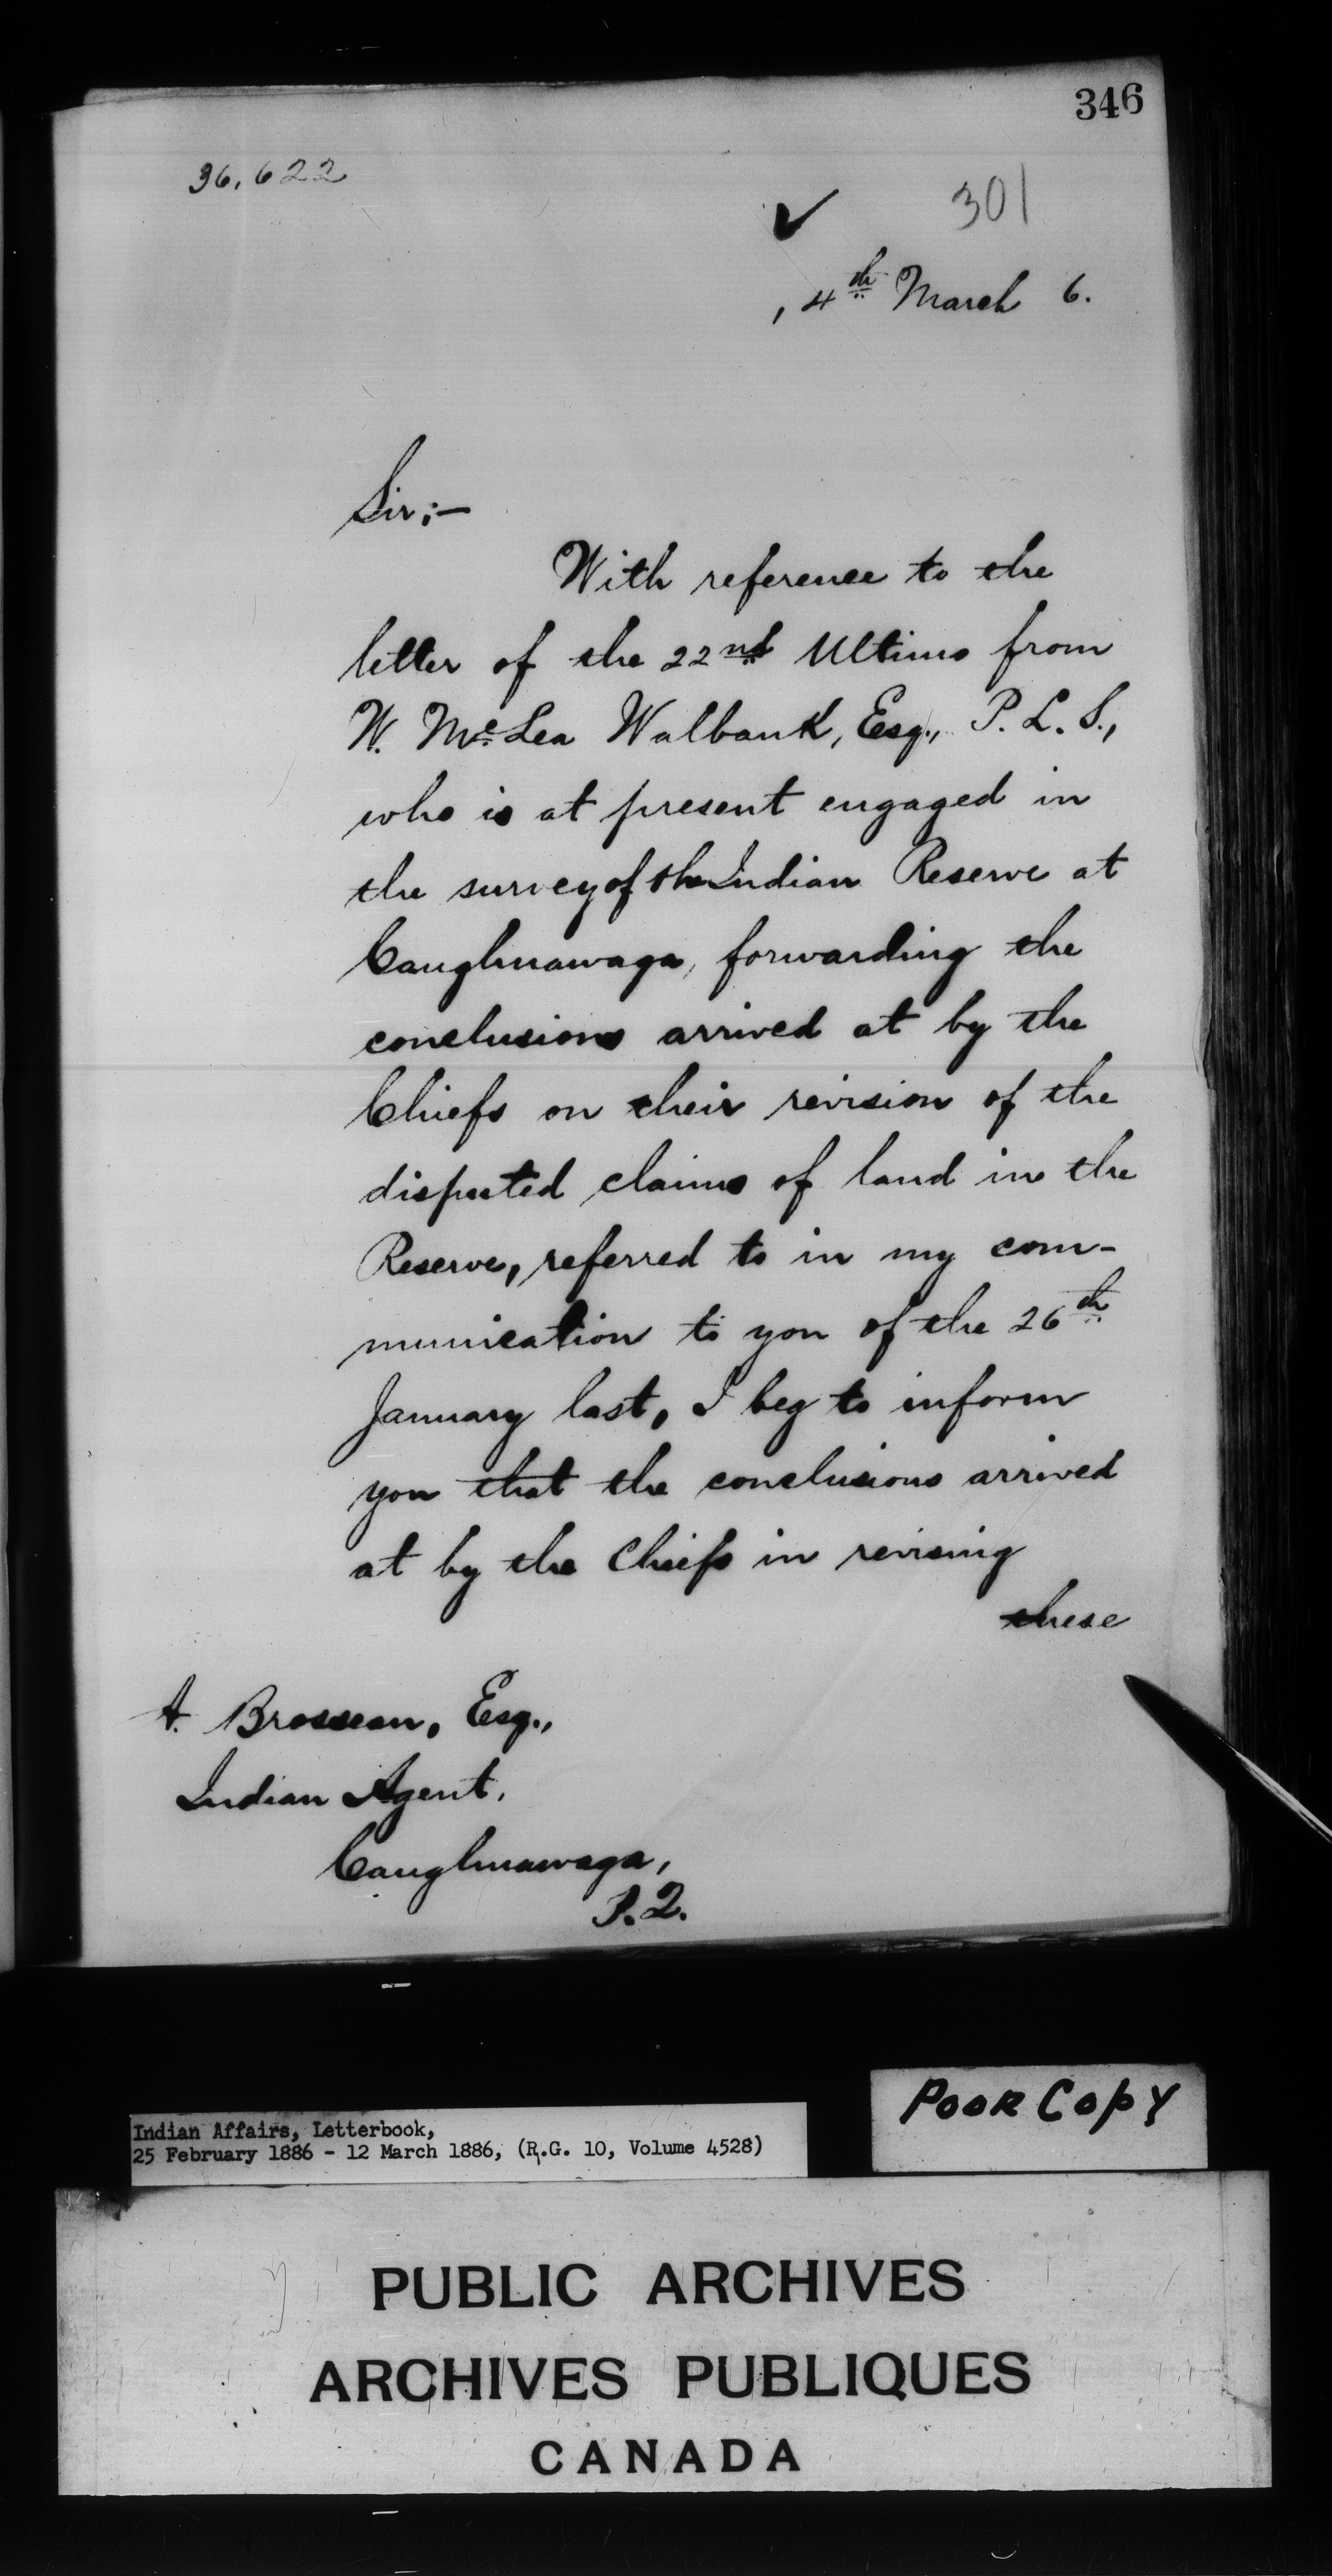 346
36,622
301
, 4th March 6.
Sir;-
With reference to the
letter of the 22nd Ultimo from
W. McLea Walbank, Esq., P. L. S.,
who is at present engaged in
the survey of the Indian Reserve at
Caughnawaga, forwarding the
conclusions arrived at by the
Chiefs on their revision of the
disputed claims of land in the
Reserve, referred to in my com-
munication to you of the 26th
January last, I beg to inform
you that the conclusions arrived
at by the Chiefs in revising
these
A. Brosseau, Esq.,
Indian Agent,
Caughnawaga,
P.Q.
POOR COPY
Indian Affairs, Letterbook,
25 February 1886 - 12 March 1886, (R.G. 10, Volume 4528)
PUBLIC ARCHIVES
ARCHIVES PUBLIQUES
CANADA